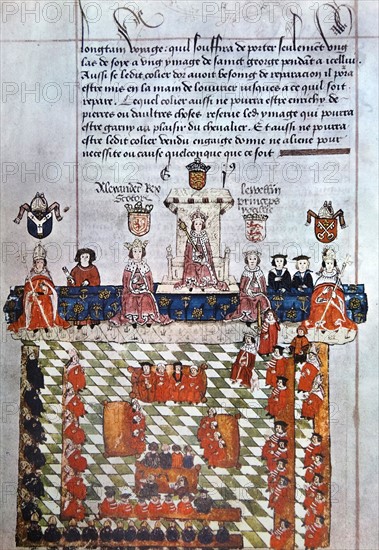 longtain voyage: quil souffira de porter seulement ung
las de soye a ung ymage de sainct george pendāt a icellui
Aussi se ledit colier dor avoit besoing de reparacion il porra
estre mis en la main de louvrier jusques a ce quil soit
repare. Lequel colier aussi ne pourra estre enrichy de
pierres ou daultres choses reserve led ymage qui pourra
estre garny au plaisir du chevalier. Et aussi ne pourra
estre ledit colier vendu engaige donne ne aliene pour
necessite ou cause quelconque que ce soit
Alexander Rex
Scotorū
Lewellin
princeps